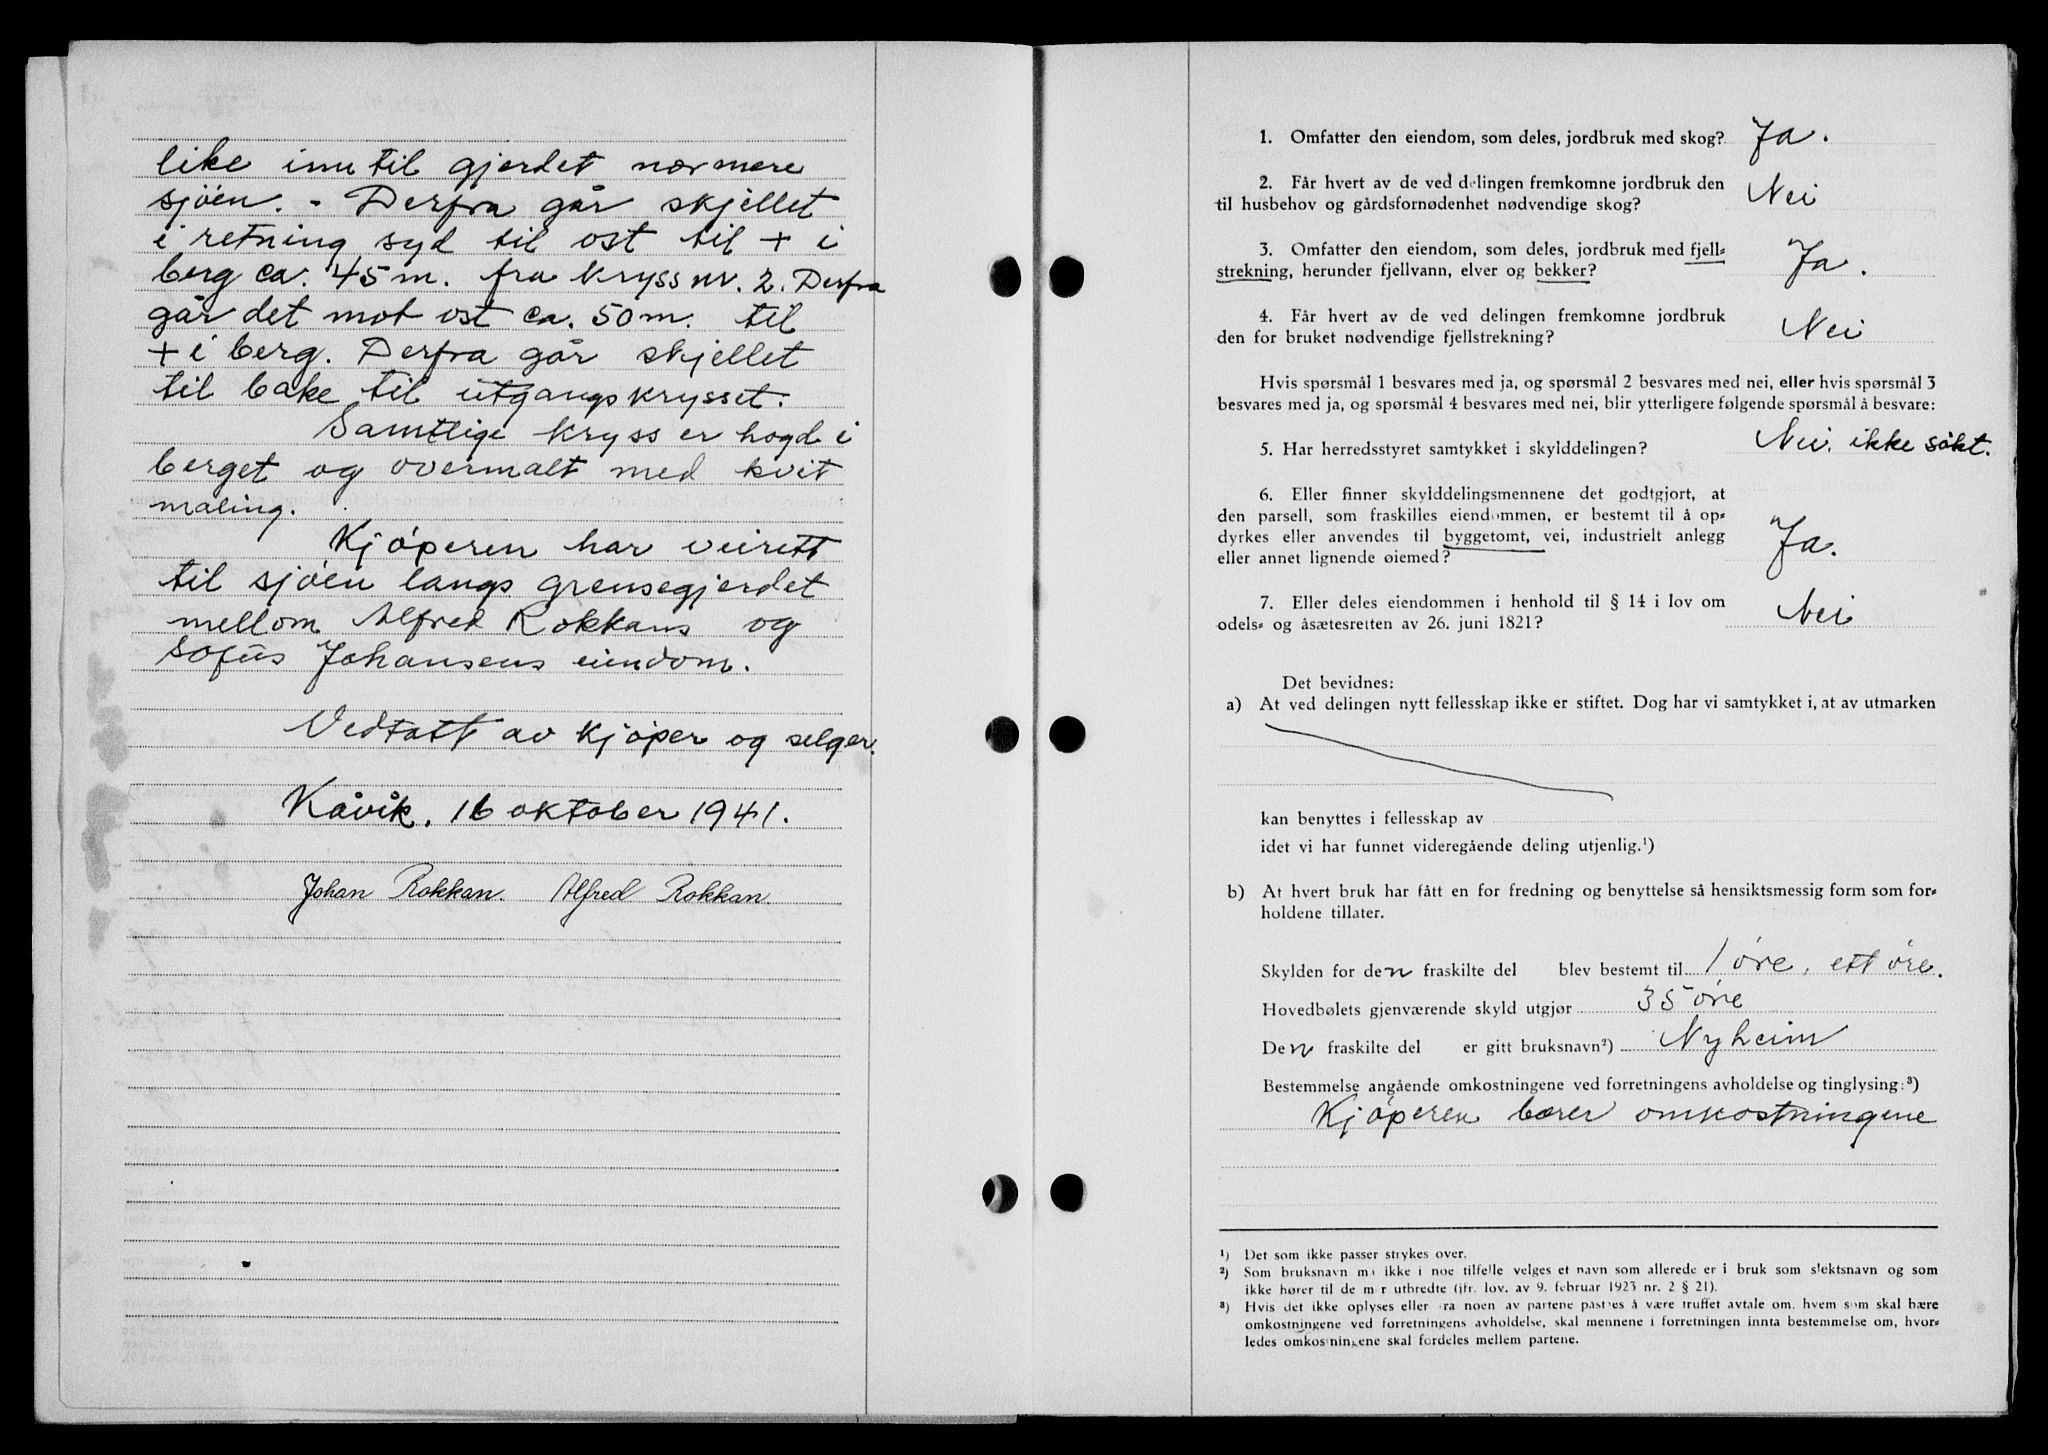 like inn til gjerdet nærmere
sjöen. - Derfra går skjellet
i retning syd til ost til + i
berg ca. 45 m. fra kryss nr. 2. Derfra
går det mot ost ca. 50 m. til
+ i berg. Derfra går skjellet
til bake til utgangskrysset.
Samtlige kryss er hogd i
berget og overmalt med kvit
maling.
Kjöperen har veirett
til sjöen langs grensegjerdet
mellom Alfred Rokkans og
Sofus Johansens eiendom.
Vedtatt av kjöper og selger.
Kåvik. 16 oktober 1941.
Johan Rokkan. Alfred Rokkan.
1. Omfatter den eiendom, som deles, jordbruk med skog? Ja.
2. Får hvert av de ved delingen fremkomne jordbruk den
til husbehov og gårdsfornødenhet nødvendige skog? Nei
3. Omfatter den eiendom, som deles, jordbruk med fjell-
strekning, herunder fjellvann, elver og bekker? Ja.
4. Får hvert av de ved delingen fremkomne jordbruk
den for bruket nødvendige fjellstrekning? Nei
Hvis spørsmål 1 besvares med ja, og spørsmål 2 besvares med nei, eller hvis spørsmål 3
besvares med ja, og spørsmål 4 besvares med nei, blir ytterligere følgende spørsmål å besvare:
5. Har herredsstyret samtykket i skylddelingen? Nei. ikke sökt.
6. Eller finner skylddelingsmennene det godtgjort, at
den parsell, som fraskilles eiendommen, er bestemt til å op-
dyrkes eller anvendes til byggetomt, vei, industrielt anlegg
eller annet lignende øiemed? Ja.
7. Eller deles eiendommen i henhold til § 14 i lov om
odels- og åsætesretten av 26. juni 1821? Nei
Det bevidnes:
a) At ved delingen nytt fellesskap ikke er stiftet. Dog har vi samtykket i, at av utmarken
kan benyttes i fellesskap av
idet vi har funnet videregående deling utjenlig.¹)
b) At hvert bruk har fått en for fredning og benyttelse så hensiktsmessig form som for-
holdene tillater.
Skylden for den fraskilte del blev bestemt til 1 øre, ett øre.
Hovedbølets gjenværende skyld utgjør 35 øre
Den fraskilte del er gitt bruksnavn²) Nyheim
Bestemmelse angående omkostningene ved forretningens avholdelse og tinglysing:³)
Kjöperen bærer omkostningene
¹) Det som ikke passer strykes over.
²) Som bruksnavn må ikke i noe tilfelle velges et navn som allerede er i bruk som slektsnavn og som
ikke hører til de mer utbredte (jfr. lov. av 9. februar 1923 nr. 2 § 21).
³) Hvis det ikke oplyses eller fra noen av partene påstås å være truffet avtale om, hvem som skal bære
omkostningene ved forretningens avholdelse, skal mennene i forretningen innta bestemmelse om, hvor-
ledes omkostningene skal fordeles mellem partene.